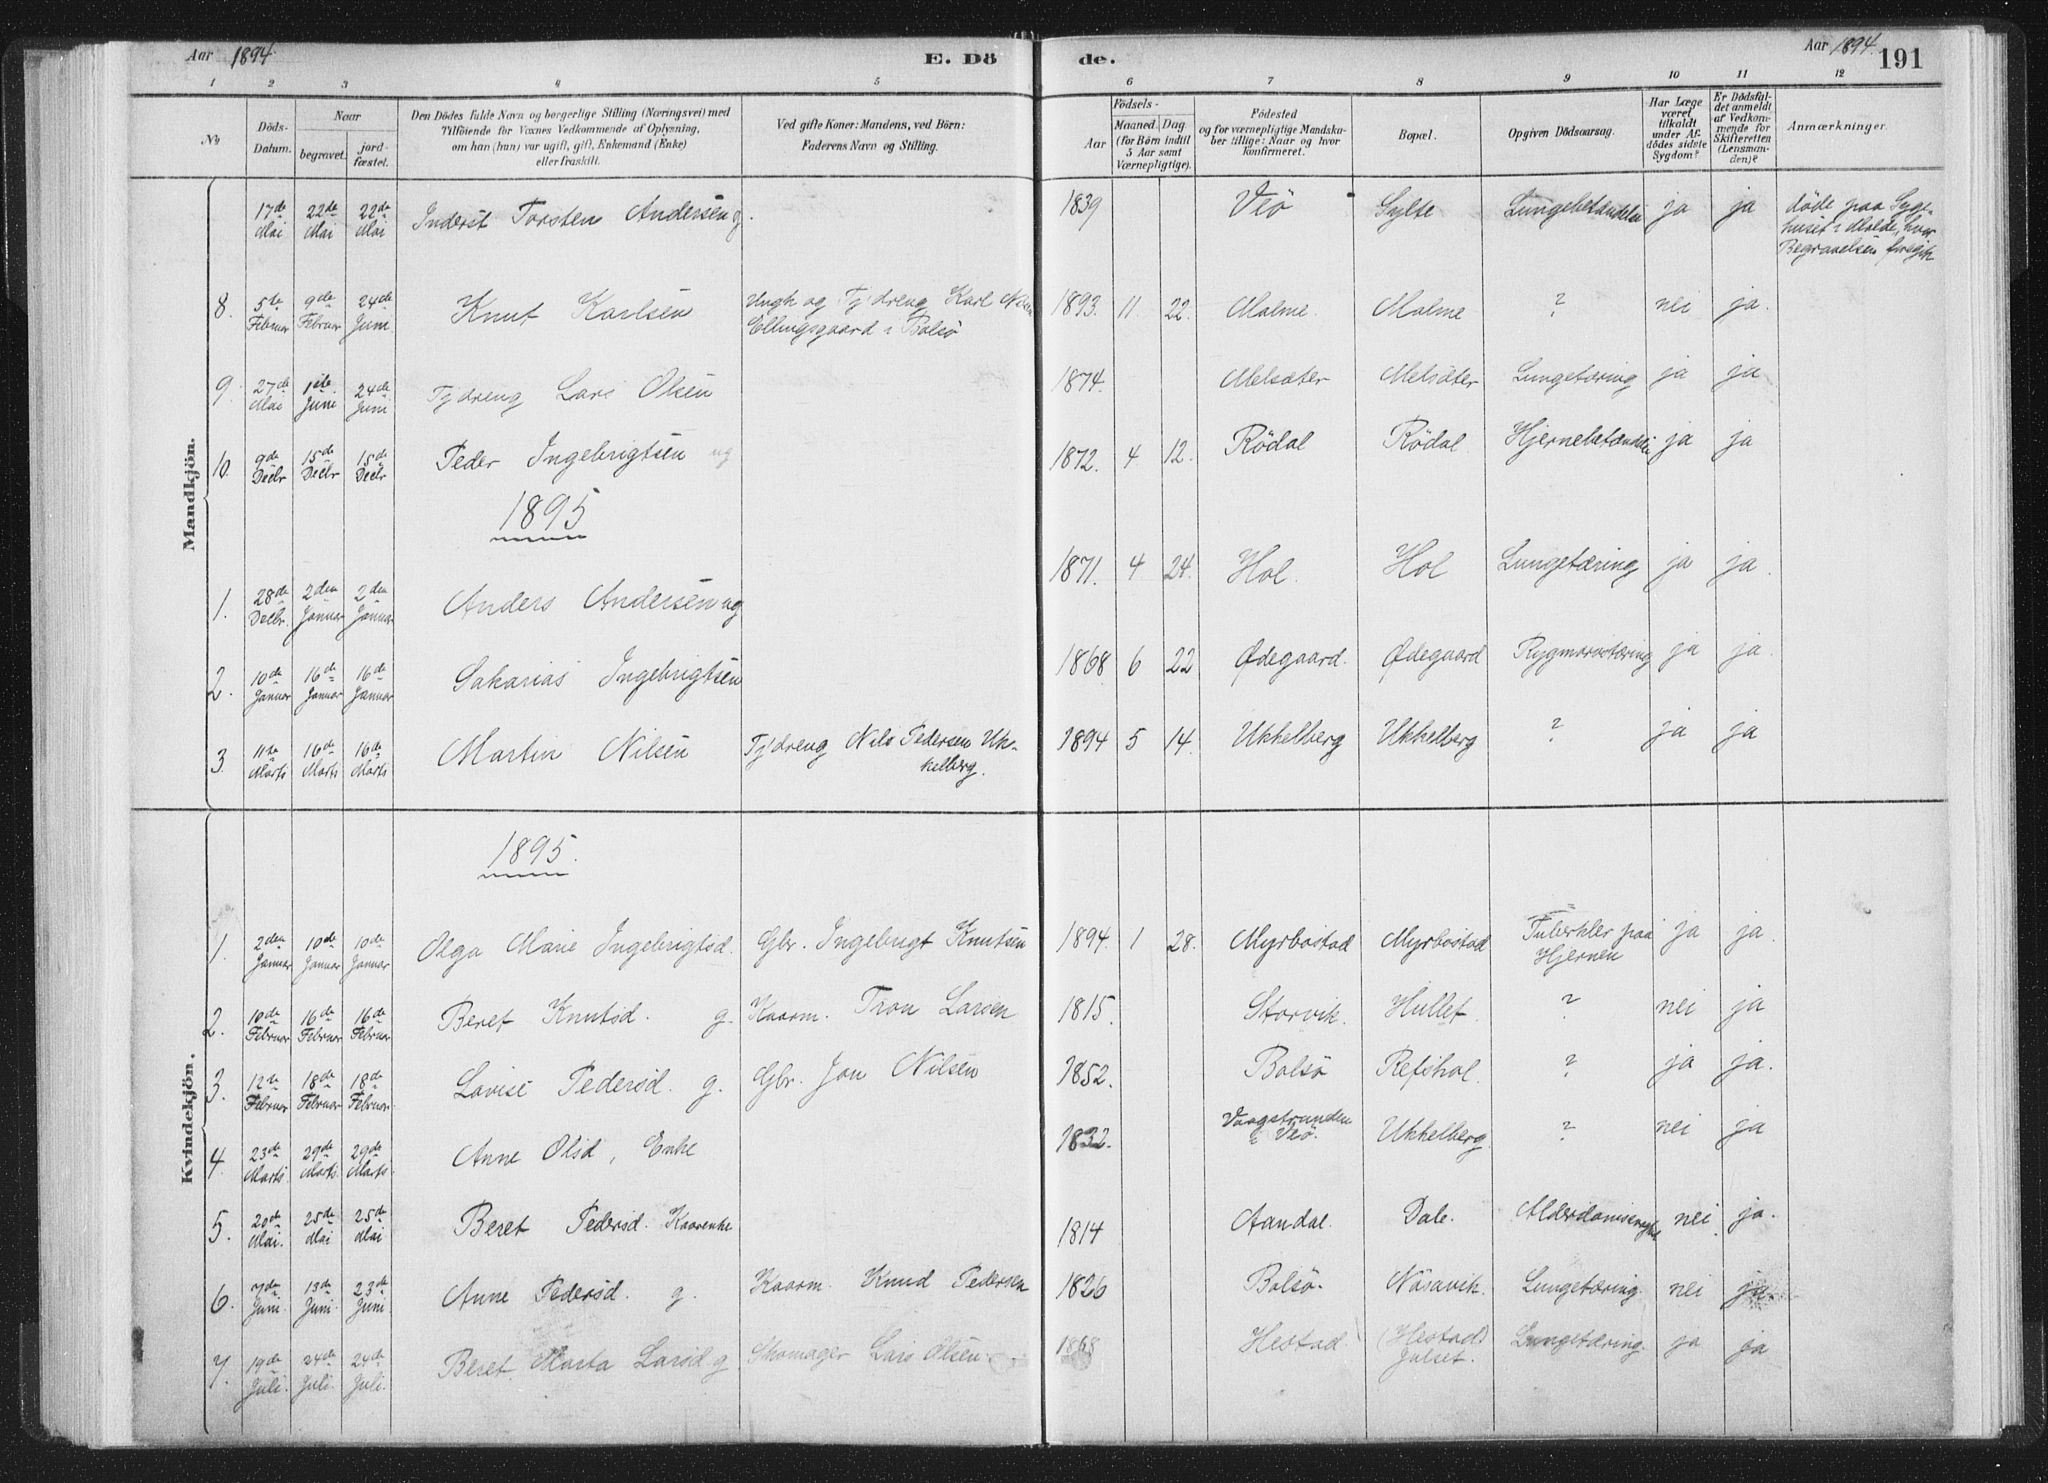 Aar 1894 E. Dö de. Aar 1894. 191
1 2 3 4 5 6 7 8 9 10 11 12
No
Döds-
Datum.
Naar
begravet.
jord-
fæstet.
Den Dödes fulde Navn og borgerlige Stilling (Næringsvei) med
Tilföiende for Voxnes Vedkommende af Oplysning,
om han (hun) var ugift, gift, Enkemand (Enke)
eller fraskilt.
Ved gifte Koner: Mandens, ved Börn:
Faderens Navn og Stilling.
Födsels-
Aar
Maaned. Dag
(for Börn indtil
5 Aar samt
Værnepligtige).
Födested
og for værnepligtige Mandska-
ber tillige: Naar og hvor
konfirmeret.
Bopæl.
Opgiven Dödsaarsag.
Har Læge
været
tilkaldt
under Af-
dödes sidste
Sygdom?
Er Dödsfal-
det anmeldt
af Vedkom-
mende for
Skifteretten
(Lensman-
den)?
Anmærkninger.
Mandkjön.
17de Mai 22de Mai 22de Mai Inderst Torsten Andersen g. 1839 Veö Sylte Lungebetændelse ja ja döde paa Syge-
huset i Molde, hvor
Begravelsen foregik
8. 5te Februar 9de Februar 24de Juni Knut Karlsen Ungk og Tj dreng Karl Nilsen
Ellingsgaard i Bolsö 1893. 11. 22. Malme. Malme ? nei ja.
9. 27de Mai 1ste Juni 24de Juni Tjdreng Lars Olsen 1874. Melsæter Melsæter Lungetæring ja ja
10. 9de Decbr 15de Decbr 15de Decbr Peder Ingebrigtsen ug 1872. 4 12. Rödal Rödal Hjernebetændelse ja ja
1895
1. 28de Decbr. 2den Januar 2den Januar Anders Andersen ug 1871. 4 24. Hol. Hol Lungetæring ja ja.
2. 10de Januar 16de Januar 16de Januar Sakarias Ingebrigtsen 1868 6 22 Ødegaard. Ødegaard Rygmarvstæring ja ja.
3. 11te Marts 16de Marts 16de Marts Martin Nilsen Tjdreng Nils Pedersen Uk-
kelberg. 1894 5 14. Ukkelberg Ukkelberg ? ja ja
Kvindekjön.
1895.
1. 2den Januar 10de Januar 10de Januar Olga Marie Ingebrigtsd. Gbr. Ingebrigt Knutsen 1894. 1 28. Myrbostad Myrbostad Tuberkler paa
Hjernen ja ja.
2. 10de Februar 16de Februar 16de Februar Beret Knutsd. g. Kaarm. Tron Larsen 1815. Storvik. Hullet. ? nei ja
3. 12te Februar 18de Februar 18de Februar Lovise Pedersd. g. Gbr. Jon Nilsen 1852. Bolsö Refshol. ? ja ja.
4. 23de Marts 29de Marts. 29de Marts. Anne Olsd, Enke 1832. Vaagstranden
i Veö. Ukkelberg ? nei ja
5. 20de Mai. 25de Mai 25de Mai Beret Pedersd. Kaarenke 1814 Aandal. Dale. Alderdomssvaghed nei. ja.
6. 7de Juni 13de Juni 23de Juni Anne Pedersd. g. Kaarm. Knud Pedersen 1826 Bolsö. Nåsavik. Lungetæring nei ja.
7. 19de Juli. 24de Juli. 24de Juli. Beret Marta Larsd g Skomager Lars Olsen. 1868 Hestad (Hestad)
Julset. Lungetæring. ja ja